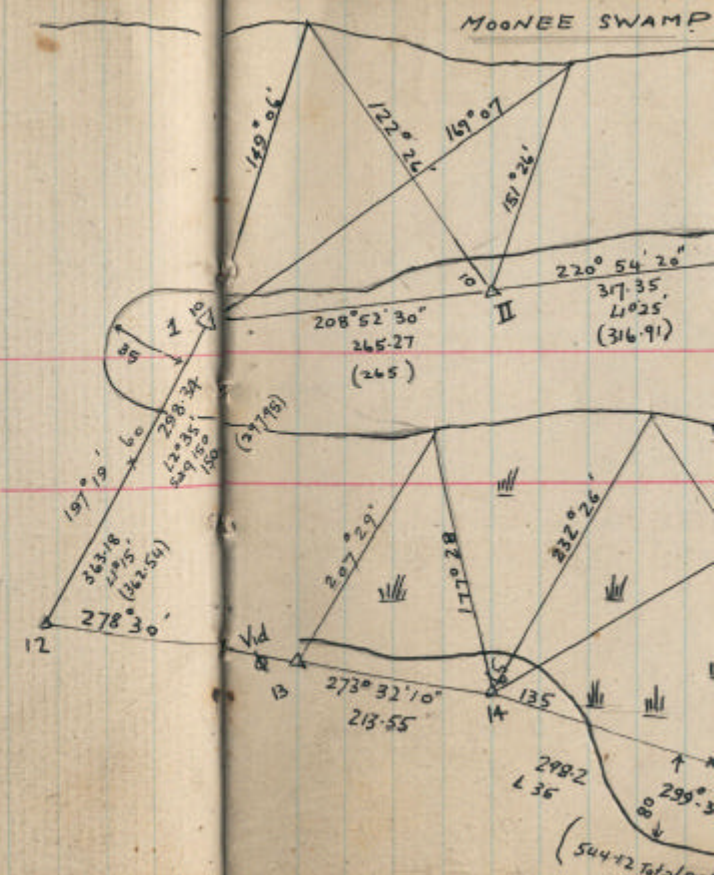 MOONEE SWAMP
149° 06'
122° 26'
169° 07
151° 26'
10
II
220° 54' 20"
317.35
L1°25'
(316.91)
208°52'30"
265.27
(265)
1
10
85
298.34
L2°35'
Sag 150
150
(297.95)
60
197° 19'
363.18
L1°15'
(362.54)
278° 30'
12
Vid
13
207° 29'
177° 28
232° 26'
273° 32' 10"
213.55
14
135
298.2
L 36
80
299°
(544.12 Total